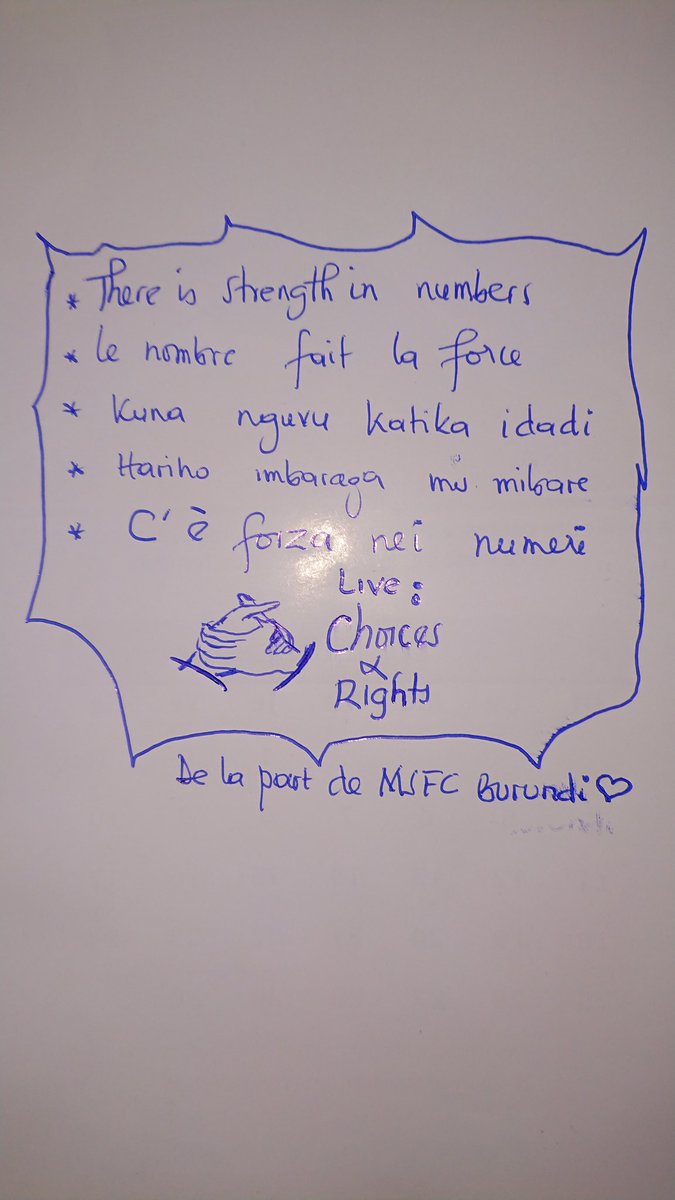 * There is strength in numbers
* le nombre fait la force
* Kuna nguvu katika idadi
* Hariho imbaraga mu mibare
* C'è forza nei numeri
Live:
Choices
&
Rights
De la part de MSFC Burundi ♡